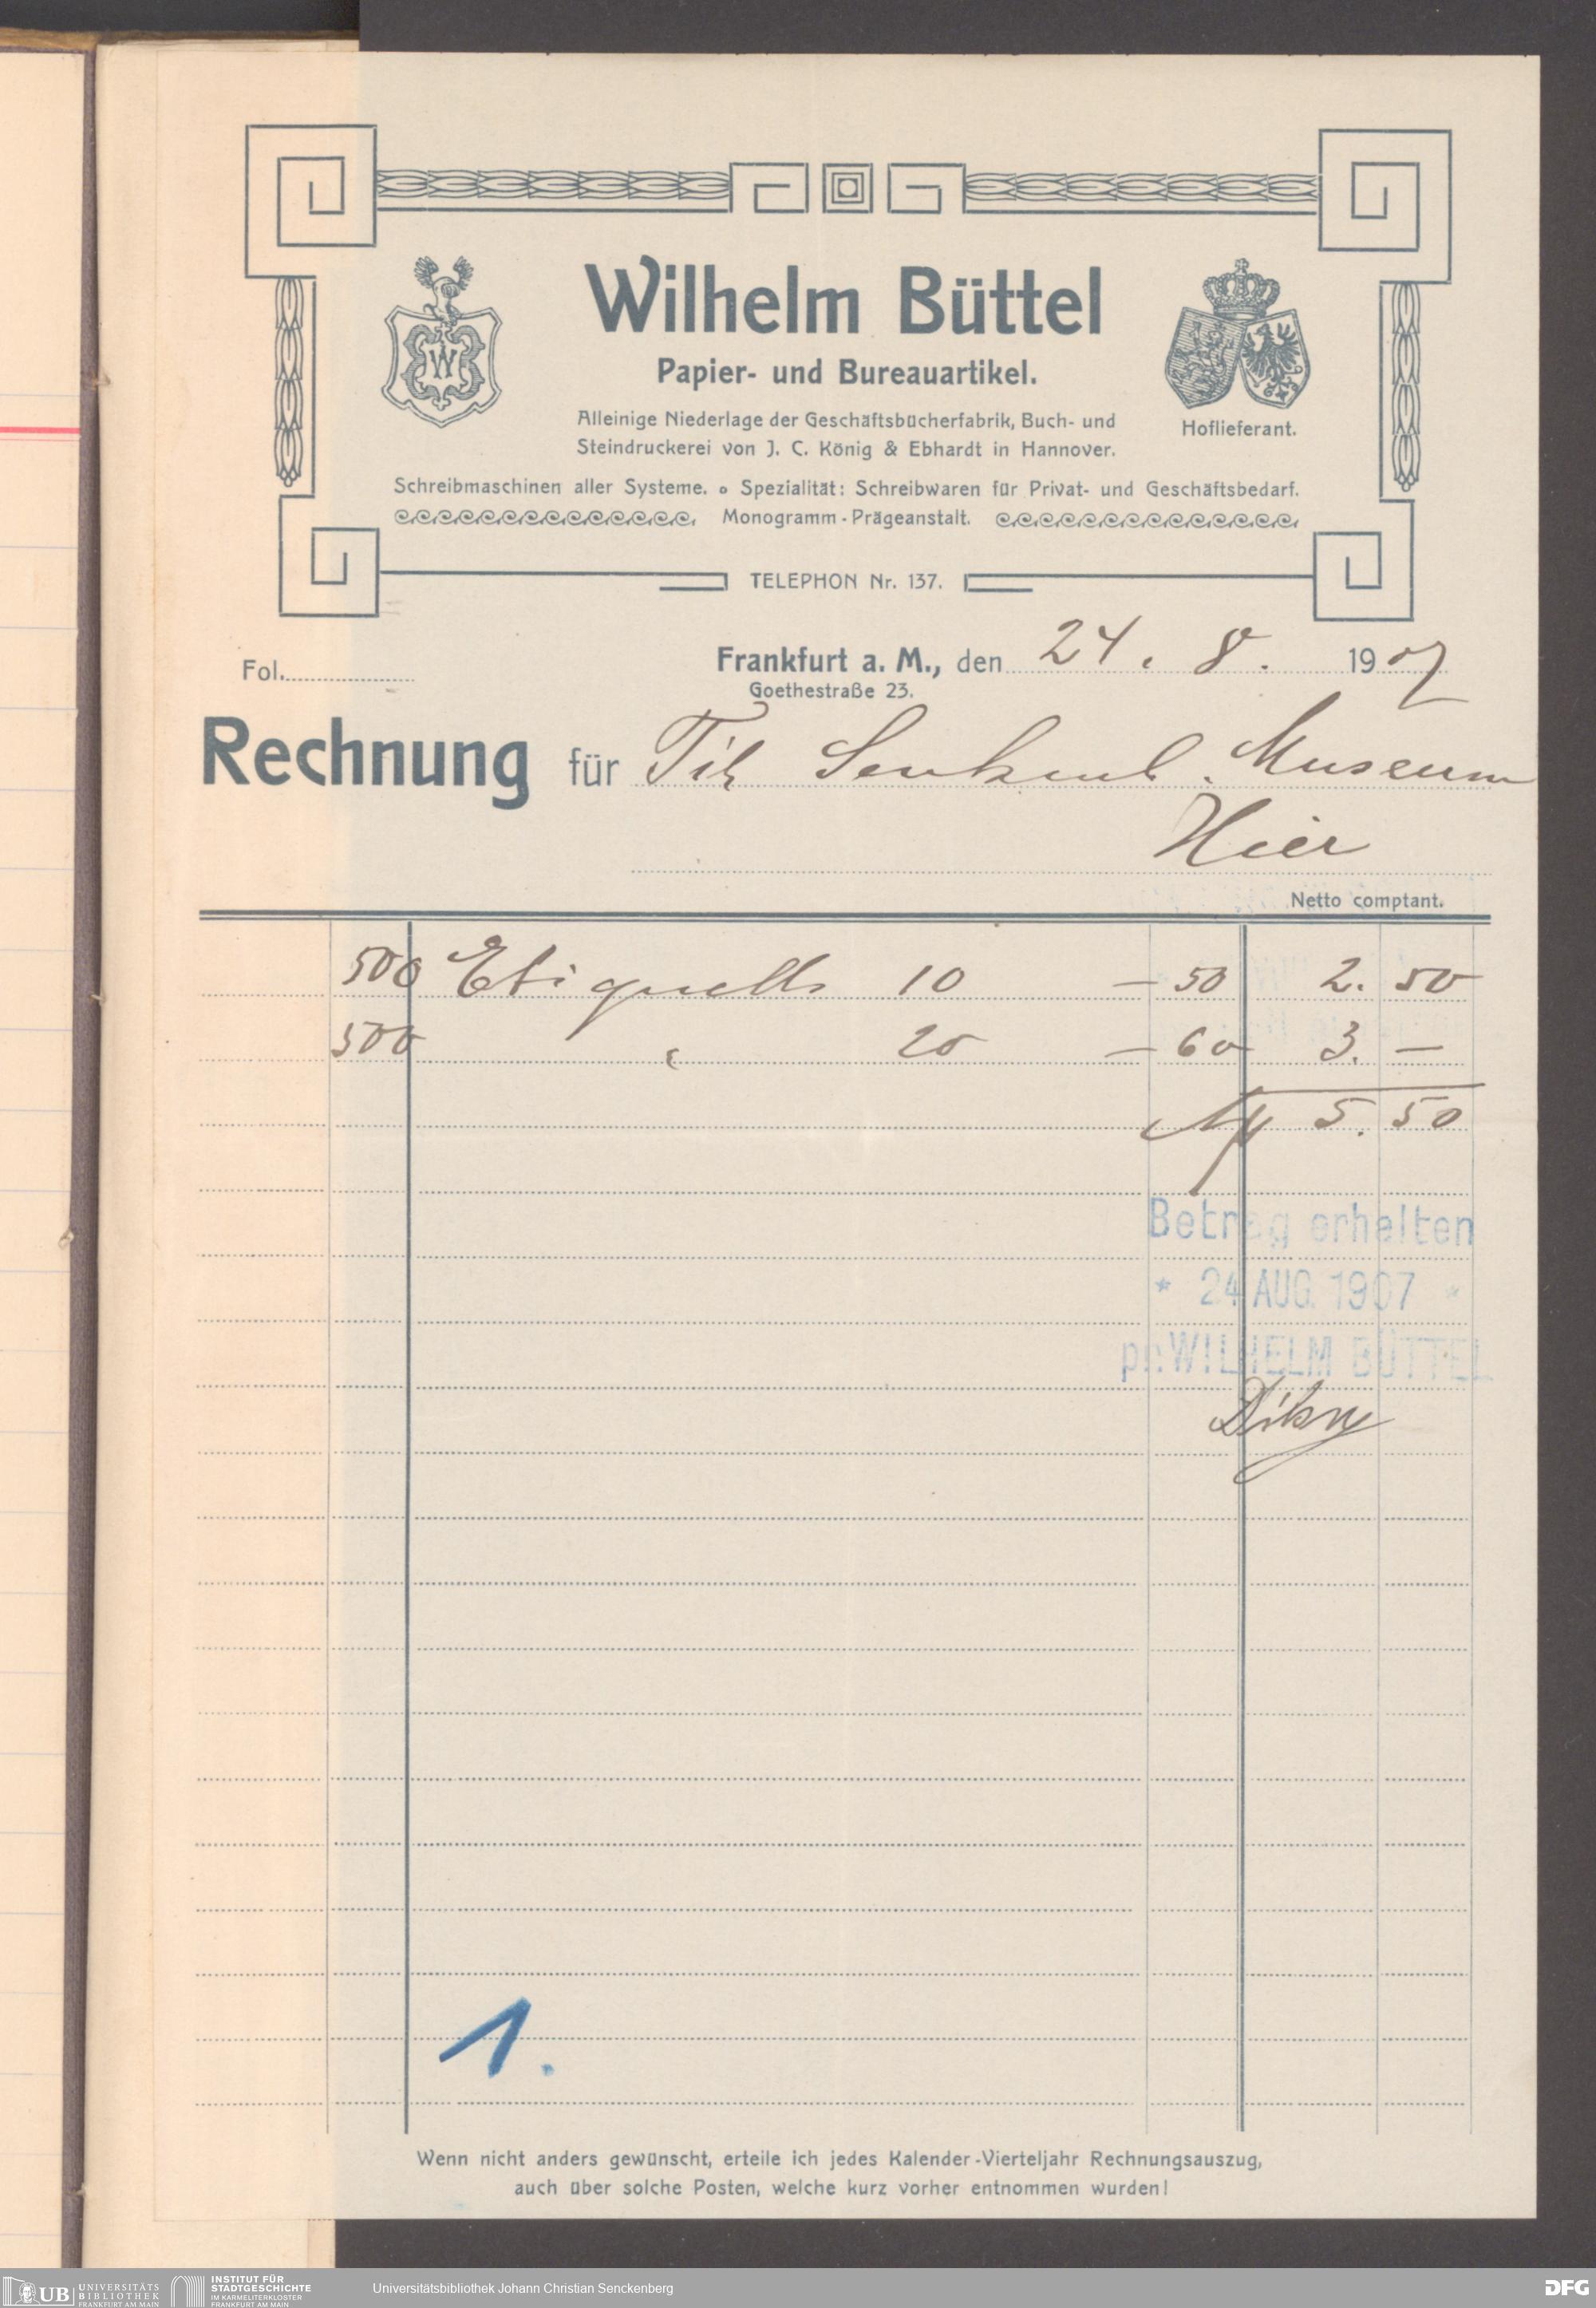 Wilhelm Büttel
Papier- und Bureauartikel.
Alleinige Niederlage der Geschäftsbücherfabrik, Buch- und
Steindruckerei von J. C. König & Ebhardt in Hannover.
Hoflieferant.
Schreibmaschinen aller Systeme. o Spezialität: Schreibwaren für Privat- und Geschäftsbedarf.
Monogramm-Prägeanstalt.
TELEPHON Nr. 137.
Fol.
Frankfurt a. M., den 24. 8. 1907
Goethestraße 23.
Rechnung für Museum
Hier
Netto comptant.
500 10 — 50 2. 50
500 " 20 — 60 3. —
M 5. 50
Betrag erhalten
* 24 AUG. 1907 *
pr. WILHELM BÜTTEL
1.
Wenn nicht anders gewünscht, erteile ich jedes Kalender-Vierteljahr Rechnungsauszug,
auch über solche Posten, welche kurz vorher entnommen wurden!
UB UNIVERSITÄTS
BIBLIOTHEK
FRANKFURT AM MAIN
INSTITUT FÜR
STADTGESCHICHTE
IM KARMELITERKLOSTER
FRANKFURT AM MAIN
Universitätsbibliothek Johann Christian Senckenberg
DFG